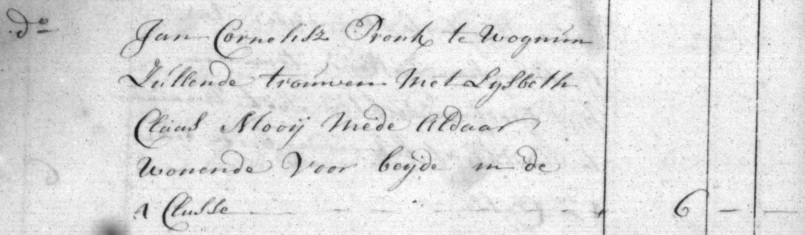 do Jan Cornelisz Pronk te Wognum
Zullende trouwen Met Lysbeth
Claas Mooij Mede Aldaar
Wonende Voor beijde in de
1 Classe 6 - -